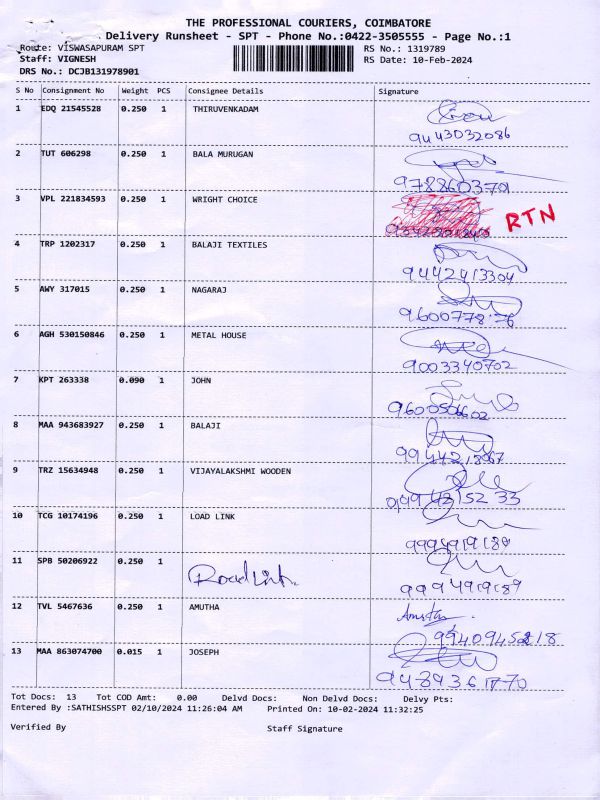 THE PROFESSIONAL COURIERS, COIMBATORE
Delivery Runsheet - SPT - Phone No.:0422-3505555 - Page No.:1
Route: VISWASAPURAM SPT RS No.: 1319789
Staff: VIGNESH RS Date: 10-Feb-2024
DRS No.: DCJB131978901
S No Consignment No Weight PCS Consignee Details Signature
1 EDQ 21545528 0.250 1 THIRUVENKADAM
9443032086
2 TUT 606298 0.250 1 BALA MURUGAN
978860370
3 VPL 221834593 0.250 1 WRIGHT CHOICE
RTN
4 TRP 1202317 0.250 1 BALAJI TEXTILES
9442413304
5 AWY 317015 0.250 1 NAGARAJ
9600778776
6 AGH 530150846 0.250 1 METAL HOUSE
9003340702
7 KPT 263338 0.090 1 JOHN
9600506602
8 MAA 943683927 0.250 1 BALAJI
9 TRZ 15634948 0.250 1 VIJAYALAKSHMI WOODEN
10 TCG 10174196 0.250 1 LOAD LINK
9994919189
11 SPB 50206922 0.250 1 Road Link
9994919189
12 TVL 5467636 0.250 1 AMUTHA Amutha
13 MAA 863074700 0.015 1 JOSEPH
Tot Docs: 13 Tot COD Amt: 0.00 Delvd Docs: Non Delvd Docs: Delvy Pts:
Entered By :SATHISHSSPT 02/10/2024 11:26:04 AM Printed On: 10-02-2024 11:32:25
Verified By Staff Signature